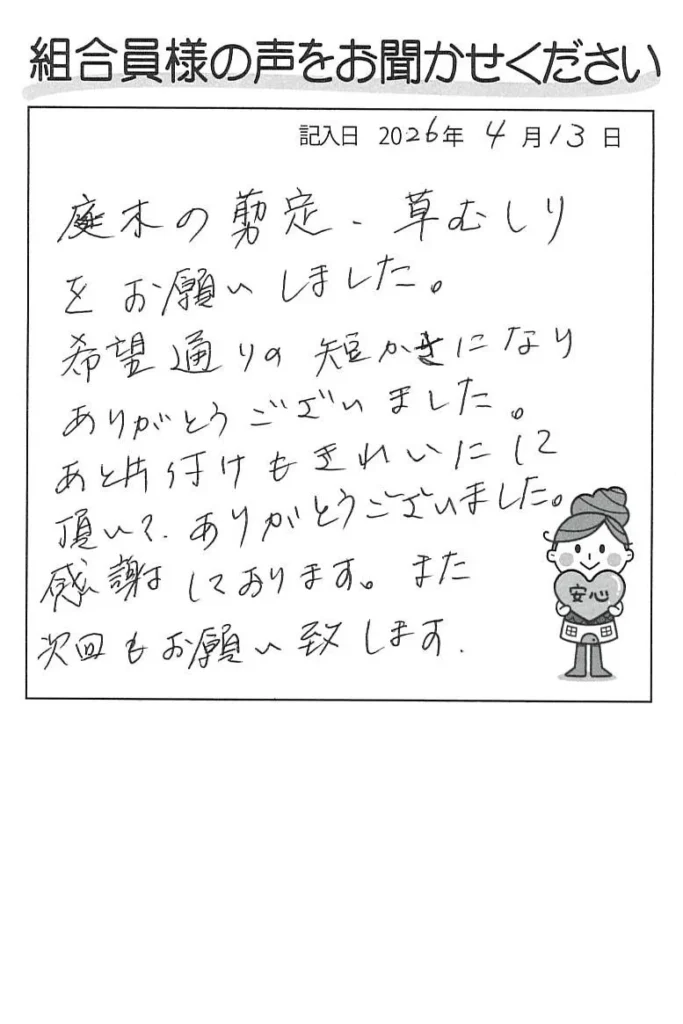 組合員様の声をお聞かせください
記入日 2026年 4月13日
庭木の剪定、草むしり
をお願いしました。
希望通りの短かさになり
ありがとうございました。
あと片付けもきれいにして
頂いて、ありがとうございました。
感謝しております。また
次回もお願い致します.
安心